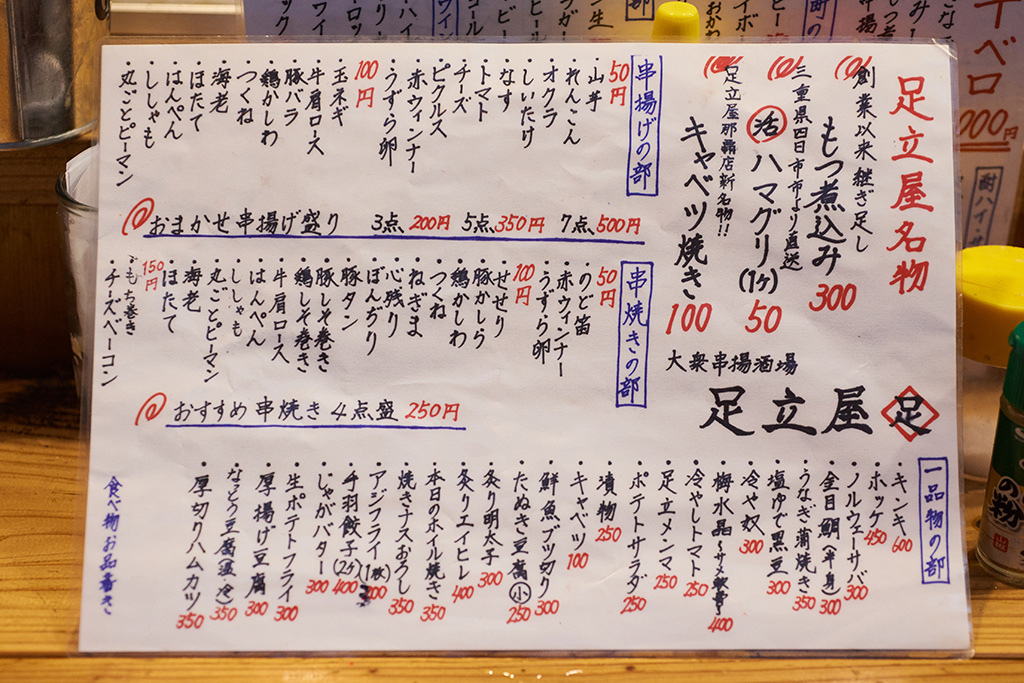 足立屋名物
創業以来継ぎ足し
もつ煮込み 300
三重県四日市市より直送
活 ハマグリ(1ヶ) 50
足立屋那覇店新名物!!
キャベツ焼き 100
大衆串揚酒場
足立屋 足
串揚げの部
50円
・山芋
・れんこん
・オクラ
・しいたけ
・なす
・トマト
・チーズ
・ピクルス
・赤ウィンナー
・うずら卵
100円
・玉ネギ
・牛肩ロース
・豚バラ
・鶏かしわ
・つくね
・海老
・ほたて
・はんぺん
・ししゃも
・丸ごとピーマン
おまかせ串揚げ盛り 3点、200円 5点、350円 7点、500円
串焼きの部
50円
・のど笛
・赤ウィンナー
・うずら卵
100円
・せせり
・豚かしら
・鶏かしわ
・つくね
・ねぎま
・心残り
・ぼんぢり
・豚タン
・豚しそ巻き
・鶏しそ巻き
・牛肩ロース
・はんぺん
・ししゃも
・丸ごとピーマン
・海老
・ほたて
150円
・もち巻き
・チーズベーコン
おすすめ串焼き4点盛 250円
一品物の部
・キンキ 600
・ホッケ 450
・ノルウェーサバ 300
・金目鯛(半身) 300
・うなぎ蒲焼き 350
・塩ゆで黒豆 300
・冷や奴 300
・梅水晶 400
・冷やしトマト 250
・足立メンマ 250
・ポテトサラダ 250
・漬物 250
・キャベツ 100
・鮮魚ブツ切り 300
・たぬき豆腐 小 250
・炙り明太子 300
・炙りエイヒレ 400
・本日のホイル焼き 350
・焼きナスおろし 350
・アジフライ(1枚) 200
・手羽餃子(2ヶ) 400
・じゃがバター 300
・生ポテトフライ 300
・厚揚げ豆腐 300
・なっとう豆腐(温・冷) 350
・厚切りハムカツ 350
食べ物お品書き